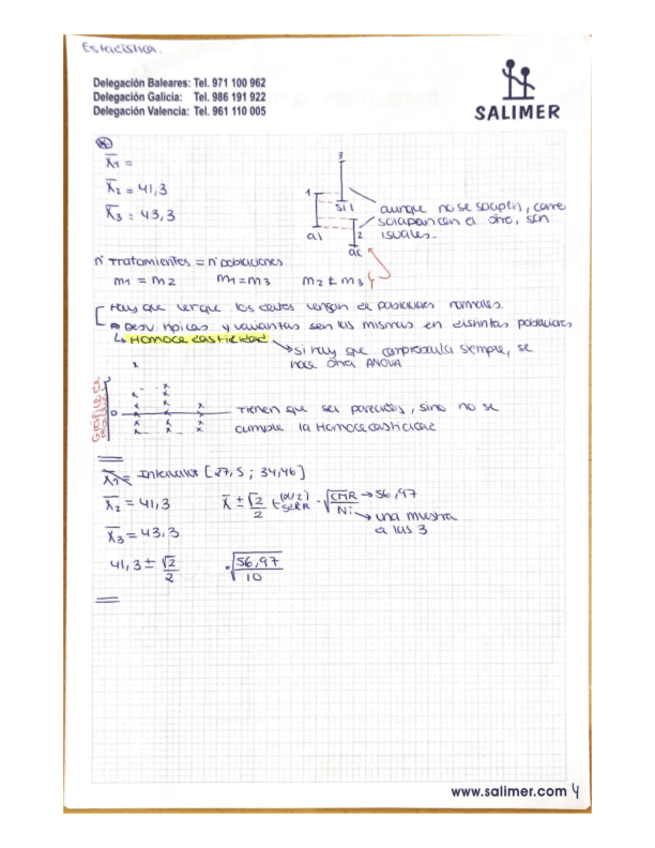 Estadística.
Delegación Baleares: Tel. 971 100 962
Delegación Galicia: Tel. 986 191 922
Delegación Valencia: Tel. 961 110 005
SALIMER
X̄1 =
X̄2 = 41,3
X̄3 = 43,3
3
1
si 1
a1
2
ac
aunque no se solapen, como
solapan con el otro, son
iguales.
nº Tratamientos = nº poblaciones
m1 = m2 m1 = m3 m2 ± m3
Hay que ver que los datos vengan de poblaciones normales.
Desv. típicas y varianzas sean las mismas en distintas poblaciones
↳ Homocedasticidad
si hay que comprobarla siempre, se
hace otra ANOVA
Gráfico de
0
Tienen que ser parecidos, sino no se
cumple la Homocedasticidad
X̄1 = Intervalos [27,5 ; 34,46]
X̄2 = 41,3 X̄ ± √2/2 t(α/2) · √CMR/Ni → 56,97
X̄3 = 43,3 → una muestra
a las 3
41,3 ± √2/2 · √56,97/10
www.salimer.com 4